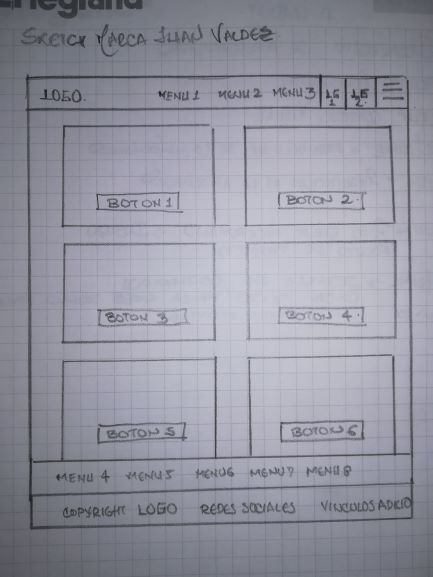 negland
SKETCH MARCA JUAN VALDEZ
LOGO. MENU 1 MENU 2 MENU 3
BOTON 1 BOTON 2.
BOTON 3 BOTON 4.
BOTON 5 BOTON 6
MENU 4 MENU 5 MENU 6 MENU 7 MENU 8
COPYRIGHT LOGO REDES SOCIALES VINCULOS ADICIO